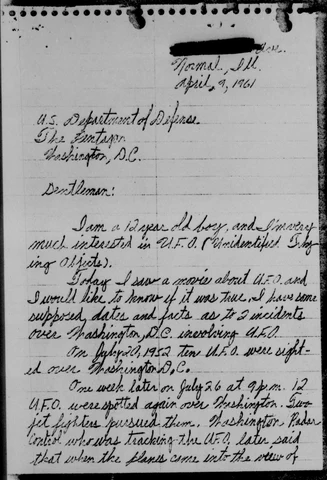 Ave.
Normal, Ill.
April, 9, 1961
U.S. Department of Defense
The Pentagon
Washington, D.C.
Gentlemen:
I am a 12 year old boy, and I'm very
much interested in U.F.O. (Unidentified Fly
ing Objects).
Today I saw a movie about U.F.O. and
I would like to know if it was true. I have some
supposed dates and facts as to 2 incidents
over Washington, D.C. involving U.F.O.
On July 20, 1952 ten U.F.O. were sight-
ed over Washington D.C.
One week later on July 26 at 9 p.m. 12
U.F.O. were spotted again over Washington. Two
jet fighters pursued them. Washington Radar
Control who was tracking the U.F.O. later said
that when the planes come into the view of